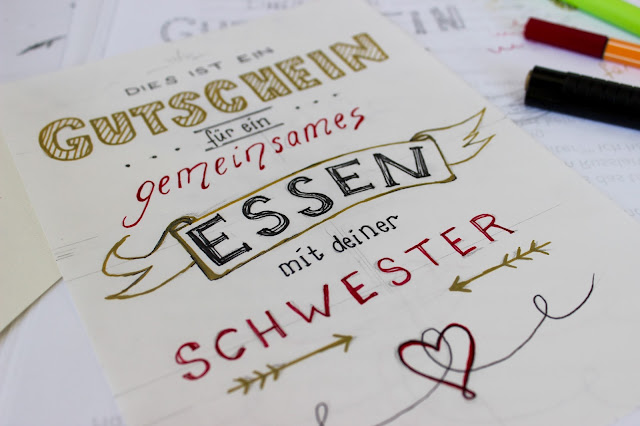 DIES IST EIN
GUTSCHEIN
für ein
gemeinsames
ESSEN
mit deiner
SCHWESTER